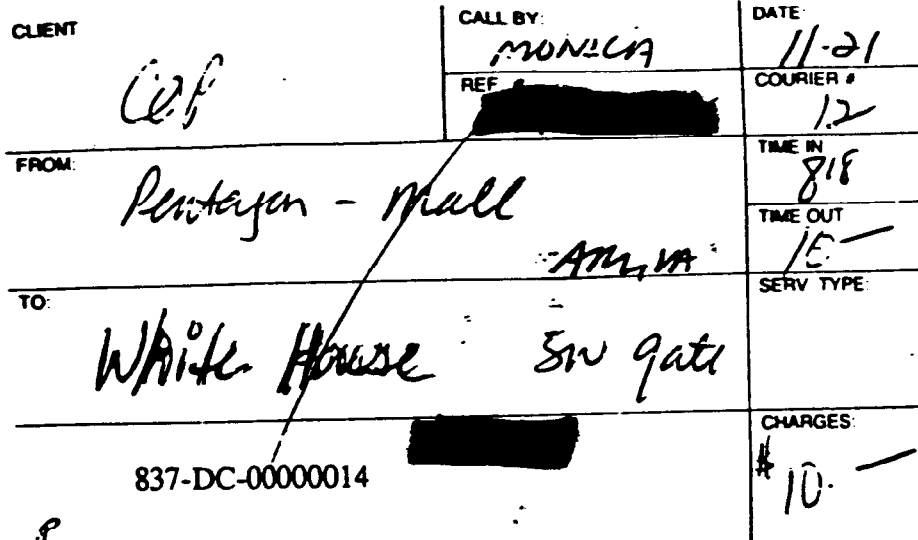 CLIENT
CALL BY:
MONICA
DATE:
11-21
REF
COURIER #
12
FROM:
Pentagon - Mall
TIME IN
818
TIME OUT
TO:
White House SW gate
SERV TYPE:
CHARGES:
$ 10. —
837-DC-00000014